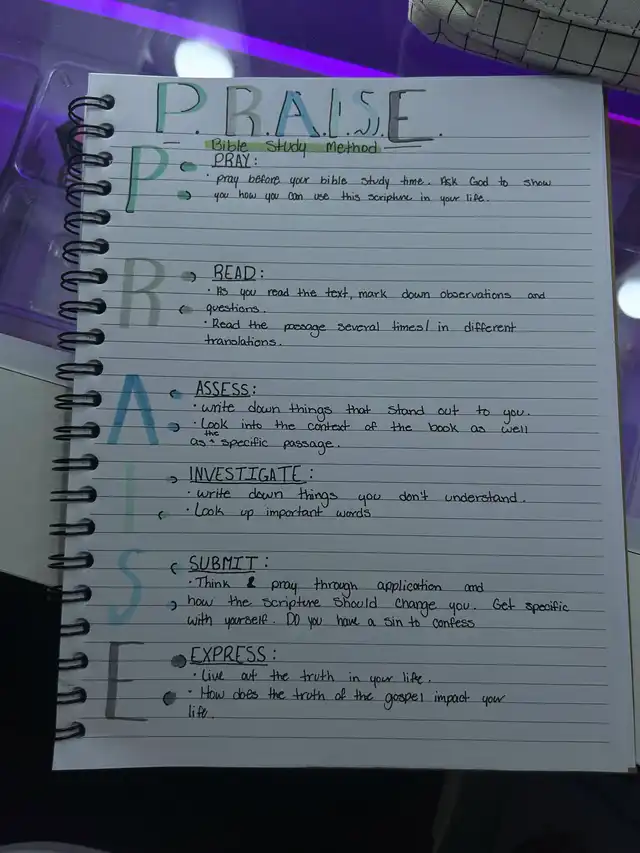 P.R.A.I.S.E.
Bible Study Method
P PRAY:
· Pray before your bible study time. Ask God to show
you how you can use this scripture in your life.
R READ:
· As you read the text, mark down observations and
questions.
· Read the passage several times/ in different
translations.
A ASSESS:
· write down things that stand out to you.
· Look into the context of the book as well
as the specific passage.
I INVESTIGATE:
· write down things you don't understand.
· Look up important words
S SUBMIT:
· Think & pray through application and
how the scripture should change you. Get specific
with yourself. Do you have a sin to confess
E EXPRESS:
· Live out the truth in your life.
· How does the truth of the gospel impact your
life.